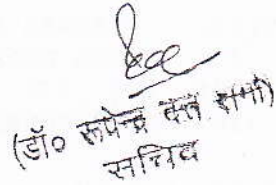 (डॉ० रूपेन्द्र दत्त शर्मा)
सचिव